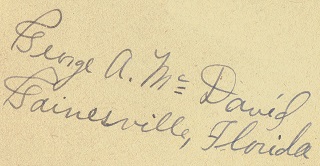 George A. Mc David
Gainesville, Florida